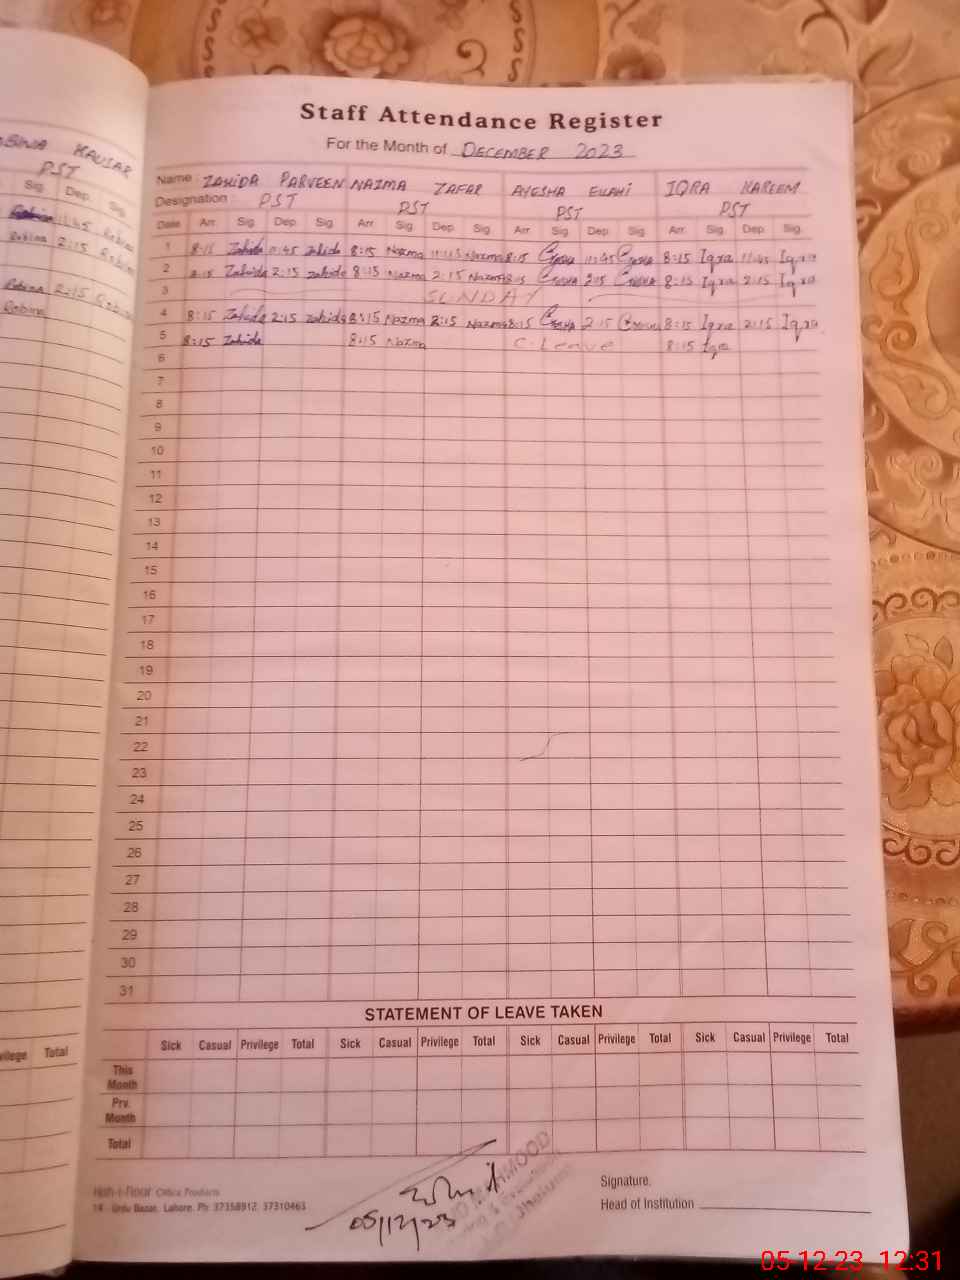 KAUSAR
PST
Sig. Dep. Sig.
11:45 Robina
Robina 2:15 Robina
Robina 2:15 Robina
Robina
Staff Attendance Register
For the Month of DECEMBER 2023
Name : ZAHIDA PARVEEN NAZMA ZAFAR AYESHA ELLAHI IQRA KAREEM
Designation : PST PST PST PST
Date Arr. Sig. Dep. Sig. Arr. Sig. Dep. Sig. Arr. Sig. Dep. Sig. Arr. Sig. Dep. Sig.
1 8:15 Zahida 11:45 Zahida 8:15 Nazma Nazma 8:15 11:45 8:15 Iqra 11:45 Iqra
2 8:15 Zahida 2:15 Zahida 8:15 Nazma 2:15 Nazma 8:15 2:15 8:15 Iqra 2:15 Iqra
3 SUNDAY
4 8:15 Zahida 2:15 Zahida 8:15 Nazma 2:15 Nazma 8:15 2:15 8:15 Iqra 2:15 Iqra
5 8:15 Zahida 8:15 Nazma C. Leave 8:15 Iqra
6
7
8
9
10
11
12
13
14
15
16
17
18
19
20
21
22
23
24
25
26
27
28
29
30
31
STATEMENT OF LEAVE TAKEN
Sick Casual Privilege Total Sick Casual Privilege Total Sick Casual Privilege Total Sick Casual Privilege Total
This Month
Prv. Month
Total
vilege Total
Office Products
19 - Urdu Bazar, Lahore. Ph: 37358912, 37310463
05/12/23
MAHMOOD
Signature.
Head of Institution
05-12-23 12:31